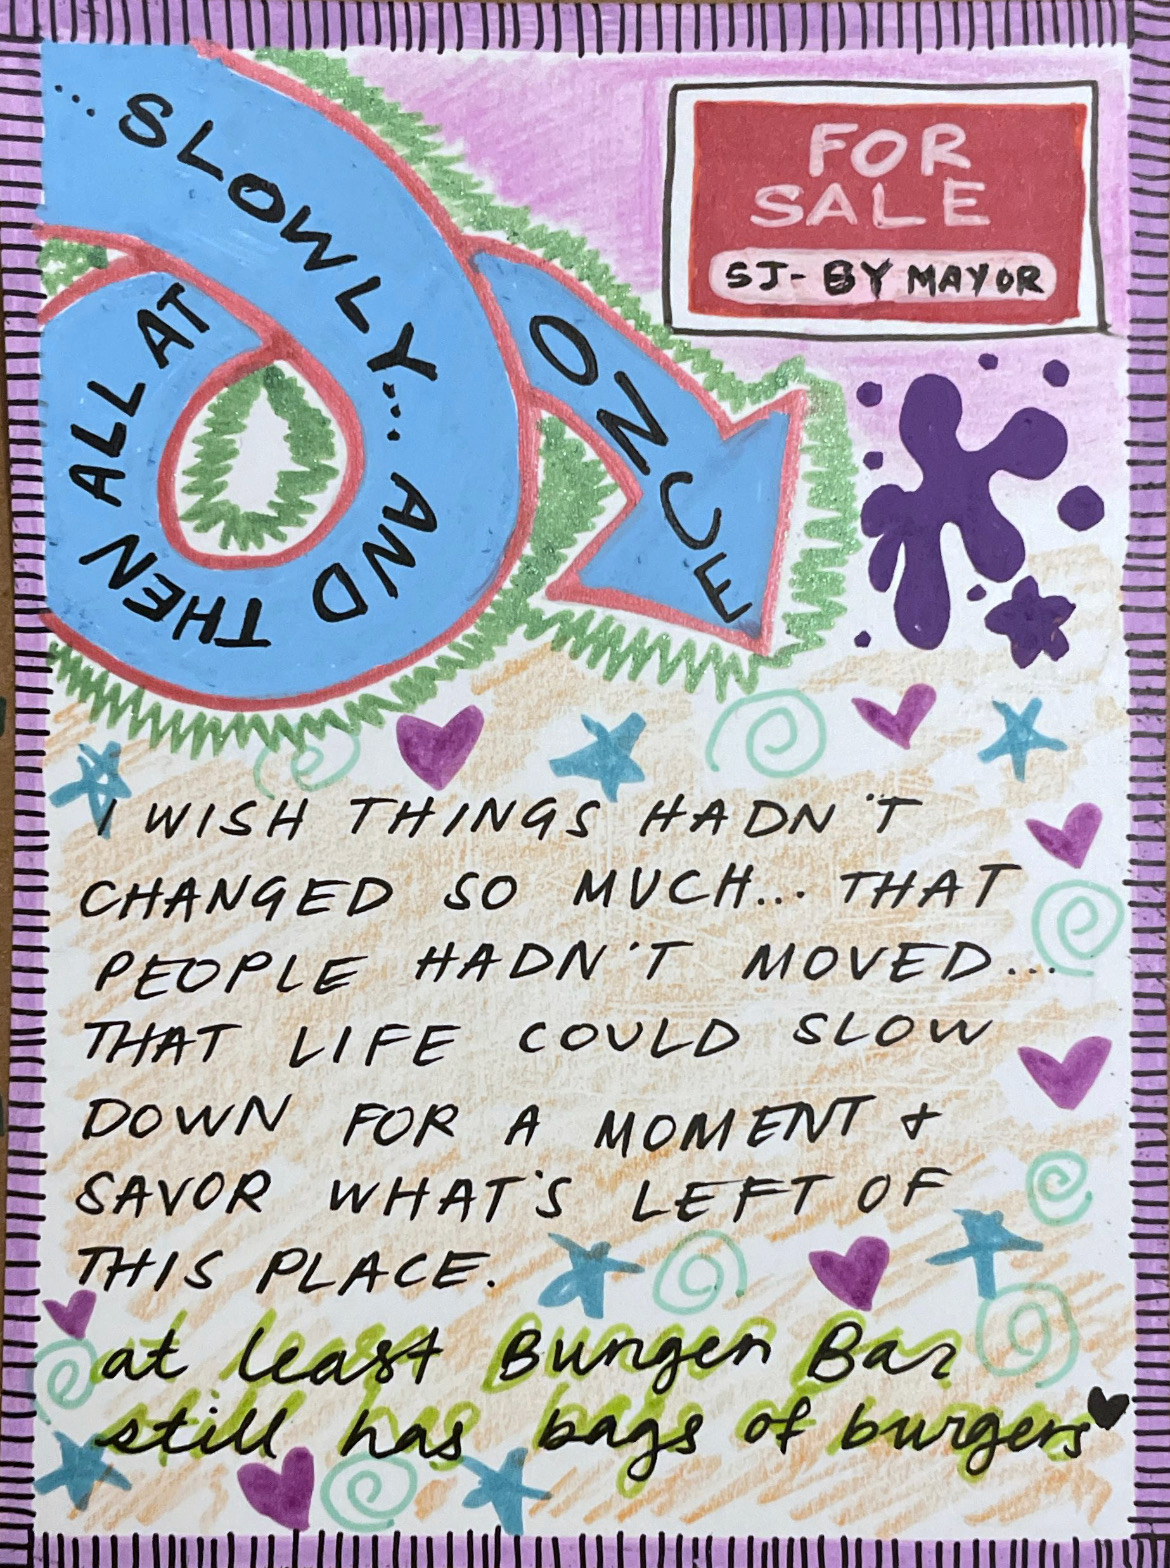 ...SLOWLY... AND THEN ALL AT ONCE
FOR
SALE
SJ- BY MAYOR
I WISH THINGS HADN'T
CHANGED SO MUCH... THAT
PEOPLE HADN'T MOVED...
THAT LIFE COULD SLOW
DOWN FOR A MOMENT &
SAVOR WHAT'S LEFT OF
THIS PLACE.
at least Burger Bar
still has bags of burgers